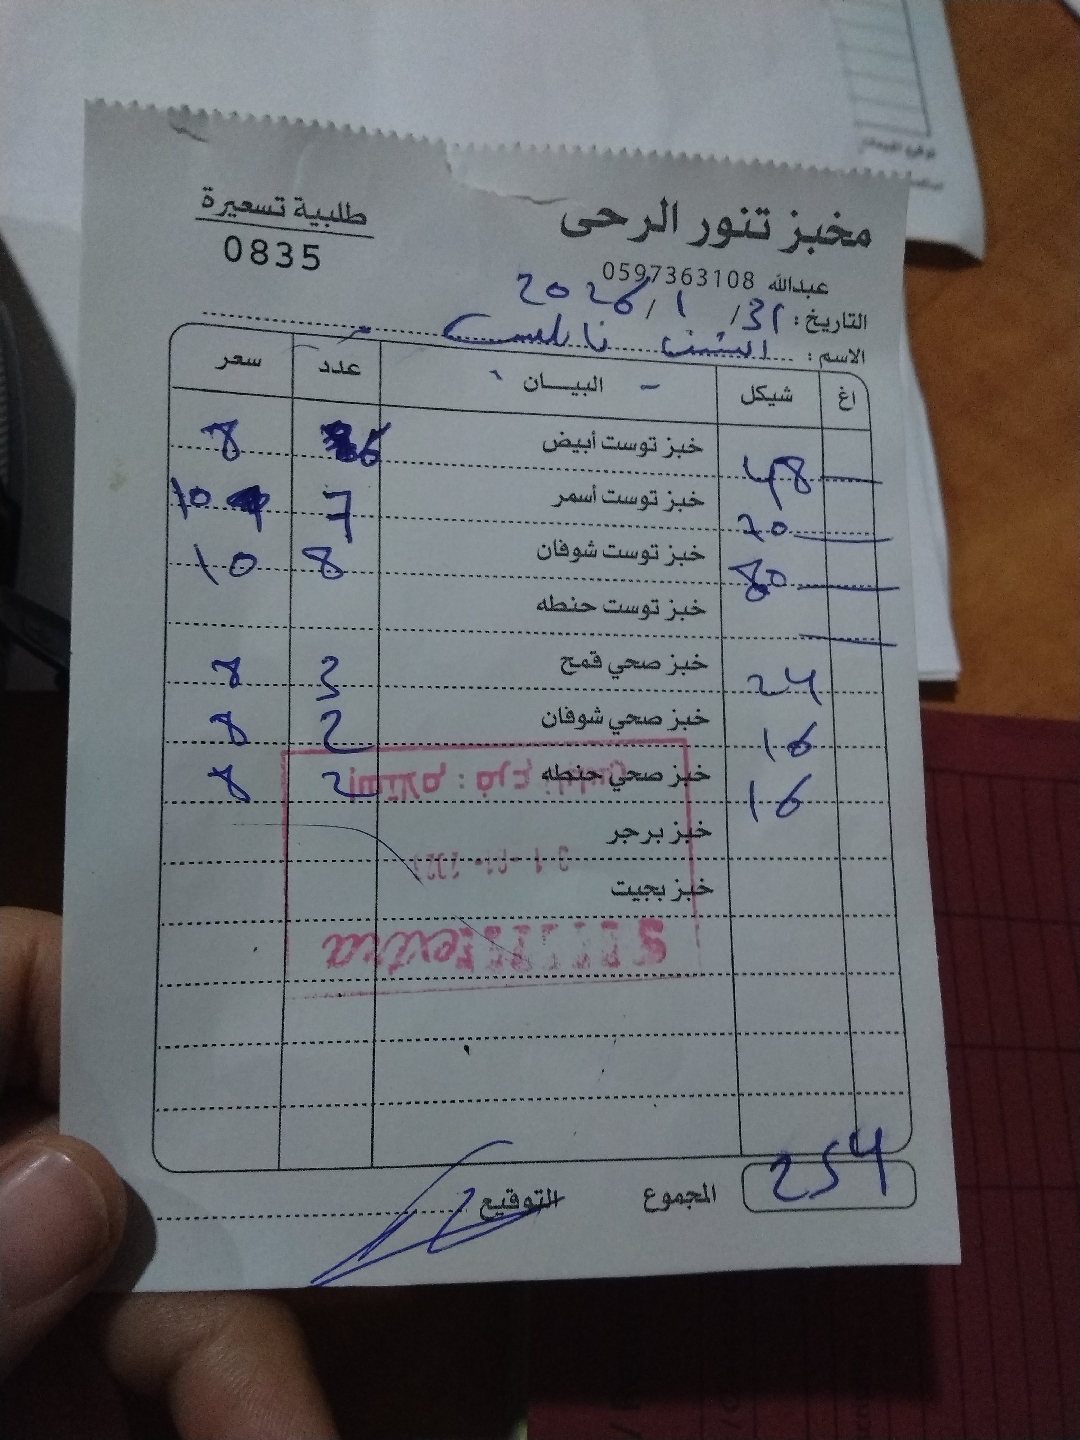 مخبز تنور الرحى
طلبية تسعيرة
0835
عبدالله 0597363108
التاريخ : 31 / 1 / 2026
الاسم : نابلس
اغ شيكل البيـــان عدد سعر
48 خبز توست أبيض 6 8
70 خبز توست أسمر 7 10
80 خبز توست شوفان 8 10
خبز توست حنطه
24 خبز صحي قمح 3 8
16 خبز صحي شوفان 2 8
16 خبز صحي حنطه 2 8
استلام : فرع نابلس
خبز برجر
خبز بجيت
extra
المجموع 254
التوقيع